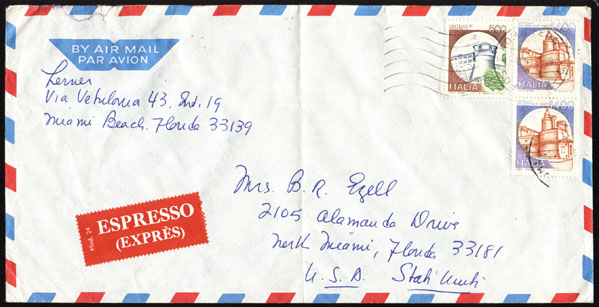 BY AIR MAIL
PAR AVION
500
1400
ITALIA
ITALIA
1400
ITALIA
Lerner
Via Vetulonia 43. Int. 19
Miami Beach. Florida 33139
Mod. 24
ESPRESSO
(EXPRÈS)
Mrs. B. R. Ezell
2105 Alamanda Drive
North Miami, Florida 33181
U.S.A. Stati Uniti